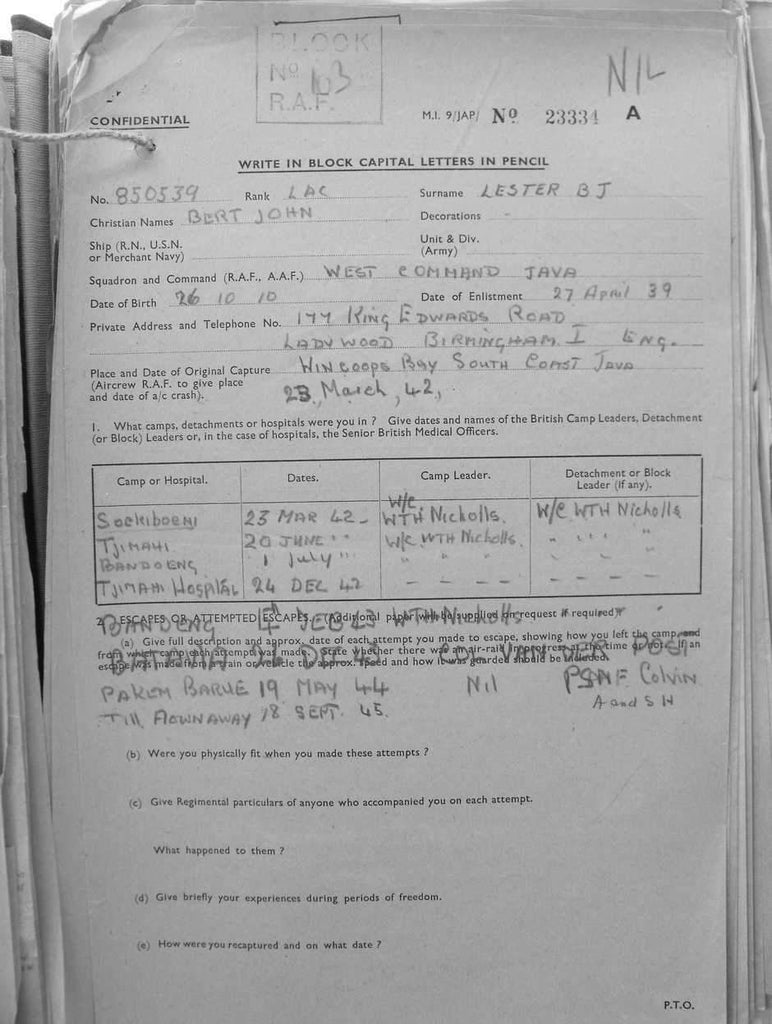 BLOCK
Nº 103
R.A.F.
NIL
CONFIDENTIAL
M.I. 9/JAP/ Nº 23334 A
WRITE IN BLOCK CAPITAL LETTERS IN PENCIL
No. 850539 Rank LAC Surname LESTER BJ
Christian Names BERT JOHN Decorations -
Ship (R.N., U.S.N. or Merchant Navy) Unit & Div. (Army)
Squadron and Command (R.A.F., A.A.F.) WEST COMMAND JAVA
Date of Birth 26 10 10 Date of Enlistment 27 April 39
Private Address and Telephone No. 177 KING EDWARDS ROAD
LADYWOOD BIRMINGHAM I ENG.
Place and Date of Original Capture WINCOOPS BAY SOUTH COAST JAVA
(Aircrew R.A.F. to give place and date of a/c crash). 23, March, 42,
1. What camps, detachments or hospitals were you in ? Give dates and names of the British Camp Leaders, Detachment
(or Block) Leaders or, in the case of hospitals, the Senior British Medical Officers.
Camp or Hospital. Dates. Camp Leader. Detachment or Block Leader (if any).
SOEKIBOEMI 23 MAR 42 - W/C WTH Nicholls. W/C WTH Nicholls
TJIMAHI 20 JUNE " W/C WTH Nicholls. " " "
BANDOENG 1 July " " " " " " "
TJIMAHI HOSPITAL 24 DEC 42 - - - - - - - -
2. ESCAPES OR ATTEMPTED ESCAPES. (Additional paper will be supplied on request if required)
BANDOENG 4 FEB 43 WTH Nicholls
(a) Give full description and approx. date of each attempt you made to escape, showing how you left the camp and
from which camp each attempt was made. State whether there was an air-raid in progress at the time or not. If an
VAN DER POST
escape was made from a train or vehicle the approx. speed and how it was guarded should be included.
PAKEM BARUE 19 MAY 44 Nil Colvin
Till FLOWNAWAY 18 SEPT. 45. A and S H
(b) Were you physically fit when you made these attempts ?
(c) Give Regimental particulars of anyone who accompanied you on each attempt.
What happened to them ?
(d) Give briefly your experiences during periods of freedom.
(e) How were you recaptured and on what date ?
P.T.O.